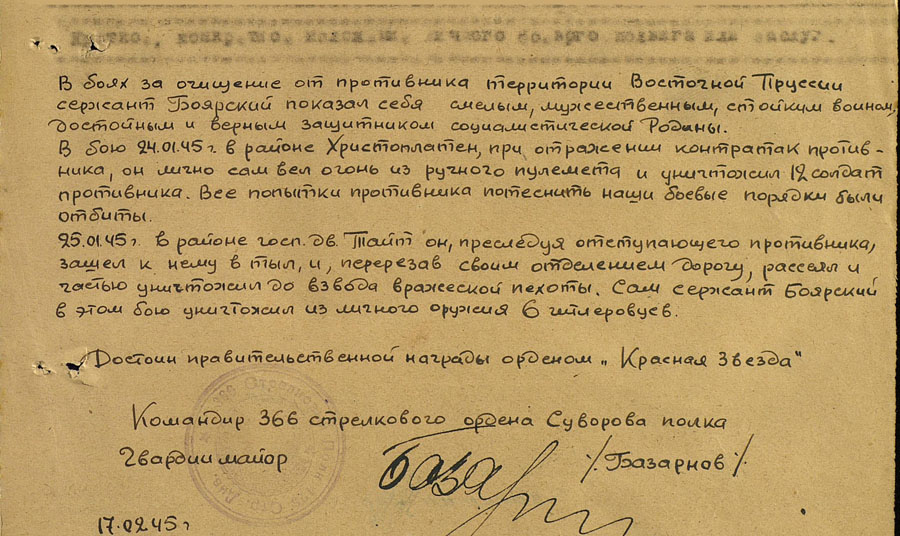 Кратко, конкретно, изложение личного боевого подвига или заслуг.
В боях за очищение от противника территории Восточной Пруссии
сержант Боярский показал себя смелым, мужественным, стойким воином,
достойным и верным защитником социалистической Родины.
В бою 24.01.45г. в районе Христоплатен, при отражении контратак против-
ника, он лично сам вел огонь из ручного пулемета и уничтожил 12 солдат
противника. Все попытки противника потеснить наши боевые порядки были
отбиты.
25.01.45г. в районе госп. дв. Тайт он, преследуя отступающего противника,
зашел к нему в тыл, и, перерезав своим отделением дорогу, рассеял и
частью уничтожил до взвода вражеской пехоты. Сам сержант Боярский
в этом бою уничтожил из личного оружия 6 гитлеровцев.
Достоин правительственной награды орденом „Красная Звезда"
Командир 366 стрелкового ордена Суворова полка
Гвардии майор /Базарнов/
17.02.45г